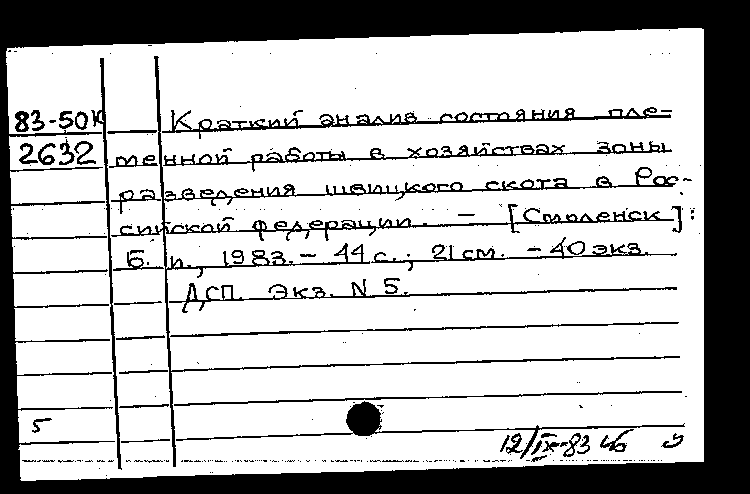 83-50К Краткий анализ состояния пле-
2632 менной работы в хозяйствах зоны
разведения швицкого скота в Рос-
сийской федерации. – [Смоленск]:
Б. и., 1983. – 44 с.; 21 см. – 40 экз.
ДСП. Экз. N 5.
5
12/IX-83